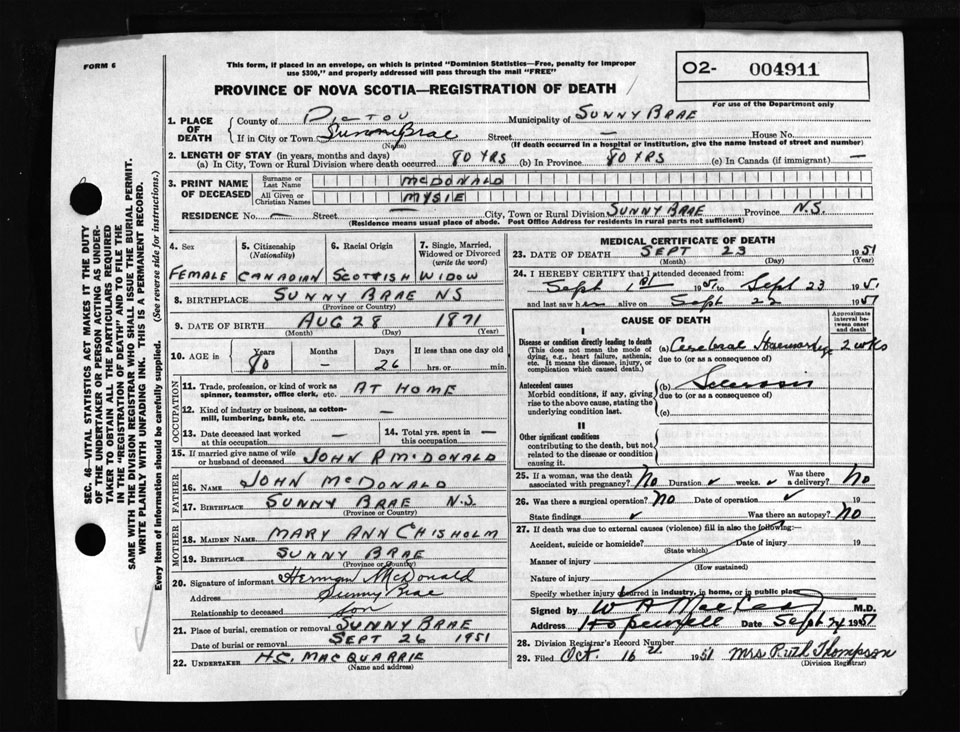 FORM 6
This form, if placed in an envelope, on which is printed "Dominion Statistics—Free, penalty for improper
use $300," and properly addressed will pass through the mail "FREE"
PROVINCE OF NOVA SCOTIA—REGISTRATION OF DEATH
02- 004911
For use of the Department only
SEC. 46—VITAL STATISTICS ACT MAKES IT THE DUTY
OF THE UNDERTAKER OR PERSON ACTING AS UNDER-
TAKER TO OBTAIN ALL THE PARTICULARS REQUIRED
IN THE "REGISTRATION OF DEATH" AND TO FILE THE
SAME WITH THE DIVISION REGISTRAR WHO SHALL ISSUE THE BURIAL PERMIT.
WRITE PLAINLY WITH UNFADING INK. THIS IS A PERMANENT RECORD.
Every item of Information should be carefully supplied. (See reverse side for instructions.)
1. PLACE OF DEATH County of Pictou Municipality of SUNNY BRAE
If in City or Town Sunny Brae Street — House No.
(Name) (If death occurred in a hospital or institution, give the name instead of street and number)
2. LENGTH OF STAY (in years, months and days)
(a) In City, Town or Rural Division where death occurred 80 YRS (b) In Province 80 YRS (c) In Canada (if immigrant) —
3. PRINT NAME OF DECEASED Surname or Last Name MCDONALD
All Given or Christian Names MYSIE
RESIDENCE No. — Street — City, Town or Rural Division SUNNY BRAE Province N.S.
(Residence means usual place of abode. Post Office Address for residents in rural parts not sufficient)
4. Sex 5. Citizenship (Nationality) 6. Racial Origin 7. Single, Married, Widowed or Divorced (write the word)
FEMALE CANADIAN SCOTTISH WIDOW
8. BIRTHPLACE SUNNY BRAE NS
(Province or Country)
9. DATE OF BIRTH AUG 28 1871
(Month) (Day) (Year)
10. AGE in Years Months Days If less than one day old
80 — 26 hrs. or min.
OCCUPATION
11. Trade, profession, or kind of work as spinner, teamster, office clerk, etc. AT HOME
12. Kind of industry or business, as cotton-mill, lumbering, bank, etc. —
13. Date deceased last worked at this occupation — 14. Total yrs. spent in this occupation —
15. If married give name of wife or husband of deceased JOHN R MCDONALD
FATHER
16. NAME JOHN MCDONALD
17. BIRTHPLACE SUNNY BRAE N.S.
(Province or Country)
MOTHER
18. MAIDEN NAME MARY ANN CHISHOLM
19. BIRTHPLACE SUNNY BRAE
(Province or Country)
20. Signature of informant Herman McDonald
Address Sunny Brae
Relationship to deceased son
21. Place of burial, cremation or removal SUNNY BRAE
Date of burial or removal SEPT 26 1951
22. UNDERTAKER H.C. MACQUARRIE
(Name and address)
MEDICAL CERTIFICATE OF DEATH
23. DATE OF DEATH SEPT 23 1951
(Month) (Day) (Year)
24. I HEREBY CERTIFY that I attended deceased from:
Sept 1st 1951 to Sept 23 1951
and last saw her alive on Sept 22 1951
CAUSE OF DEATH
Approximate interval between onset and death
I
Disease or condition directly leading to death
(This does not mean the mode of dying, e.g., heart failure, asthenia, etc. It means the disease, injury, or complication which caused death.)
(a) Cerebral Haemorrhage 2 wks
due to (or as a consequence of)
Antecedent causes
Morbid conditions, if any, giving rise to the above cause, stating the underlying condition last.
(b) Sclerosis
due to (or as a consequence of)
(c)
II
Other significant conditions
contributing to the death, but not related to the disease or condition causing it.
25. If a woman, was the death associated with pregnancy? No Duration ✓ weeks. ✓ Was there a delivery? No
26. Was there a surgical operation? No Date of operation ✓ 19
State findings ✓ Was there an autopsy? No
27. If death was due to external causes (violence) fill in also the following:—
Accident, suicide or homicide? Date of injury 19
(State which)
Manner of injury
(How sustained)
Nature of injury
Specify whether injury occurred in industry, in home, or in public place
Signed by W A M.D.
Address Hopewell Date Sept 24 1951
28. Division Registrar's Record Number
29. Filed Oct. 16th 1951 Mrs Ruth Thompson
(Division Registrar)